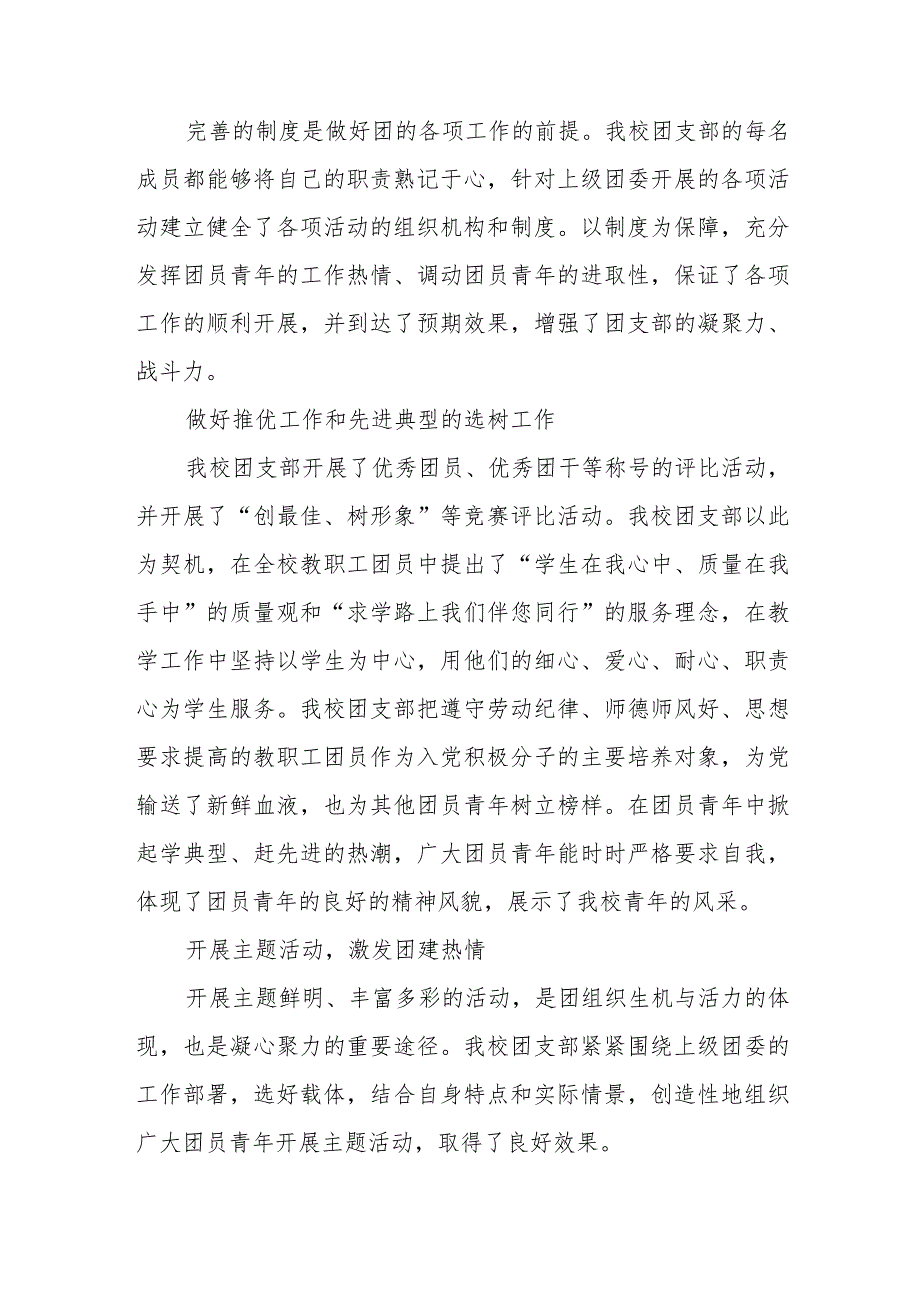 完善的制度是做好团的各项工作的前提。我校团支部的每名
成员都能够将自己的职责熟记于心，针对上级团委开展的各项活
动建立健全了各项活动的组织机构和制度。以制度为保障，充分
发挥团员青年的工作热情、调动团员青年的进取性，保证了各项
工作的顺利开展，并到达了预期效果，增强了团支部的凝聚力、
战斗力。
做好推优工作和先进典型的选树工作
我校团支部开展了优秀团员、优秀团干等称号的评比活动，
并开展了“创最佳、树形象”等竞赛评比活动。我校团支部以此
为契机，在全校教职工团员中提出了“学生在我心中、质量在我
手中”的质量观和“求学路上我们伴您同行”的服务理念，在教
学工作中坚持以学生为中心，用他们的细心、爱心、耐心、职责
心为学生服务。我校团支部把遵守劳动纪律、师德师风好、思想
要求提高的教职工团员作为入党积极分子的主要培养对象，为党
输送了新鲜血液，也为其他团员青年树立榜样。在团员青年中掀
起学典型、赶先进的热潮，广大团员青年能时时严格要求自我，
体现了团员青年的良好的精神风貌，展示了我校青年的风采。
开展主题活动，激发团建热情
开展主题鲜明、丰富多彩的活动，是团组织生机与活力的体
现，也是凝心聚力的重要途径。我校团支部紧紧围绕上级团委的
工作部署，选好载体，结合自身特点和实际情景，创造性地组织
广大团员青年开展主题活动，取得了良好效果。